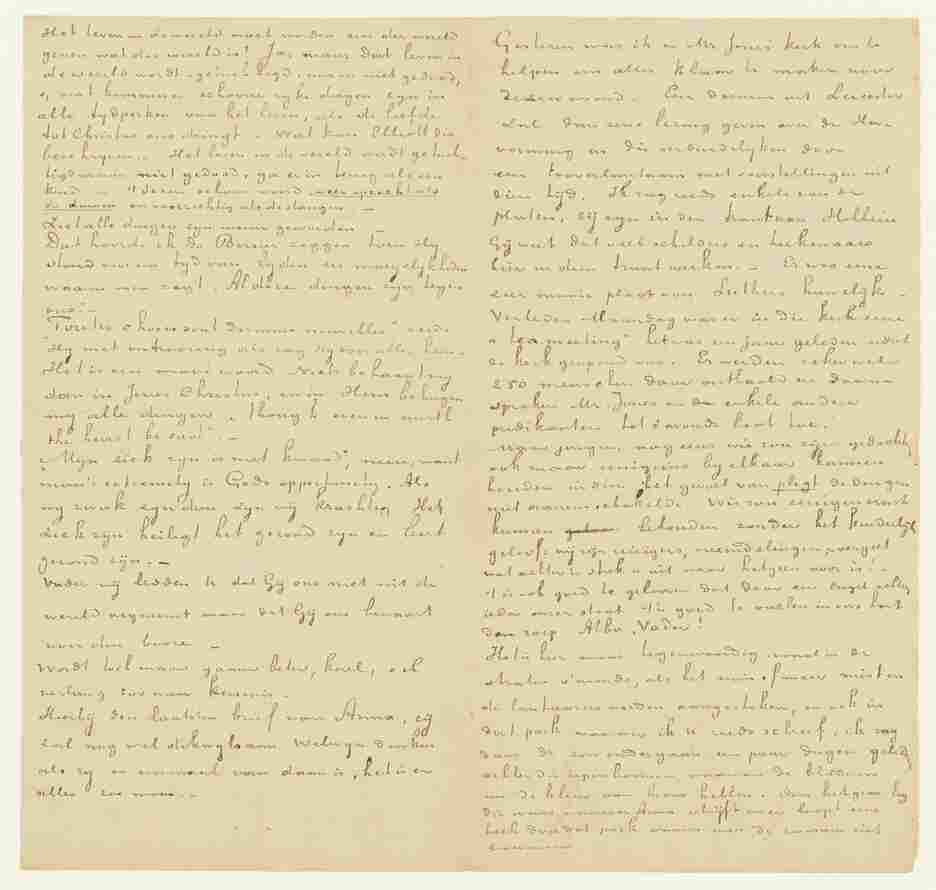 Het leven in de wereld moet worden een der wereld
geven wat der wereld is! Ja, maar dat leven in
de wereld wordt getuchtigd, maar niet gedood,
alle tydperken van het leven, als de liefde
tot Christus ons dringt. Wat kan Elliott die
beschryven. Het leven in de wereld wordt getuch-
tigd maar niet gedood, ja er in terug als een
kind
de duiven en voorzichtig als de slangen. –
Ziet alle dingen zyn nieuw geworden
Dat hoorde ik ds Bersier zeggen toen Hy
sprak van een tyd van lyden en moeyelykheden
waarin men zegt, Al deze dingen zyn tegen
ons". –
"Toutes choses sont devenues nouvelles" zeide
Hy met ontroering als zag hy over alles heen.
Het is een mooi woord Niets behaagt my
dan in Jezus Christus, en in Hem behagen
my alle dingen. "though even in mirth
the heart be sad". –
"Myn ziek zyn is niet kwaad", neen, want
man's extremity is Gods opportunity. Als
wy zwak zyn dan zyn wy krachtig. Het
ziek zyn heiligt het gezond zyn en leert
gezond zyn. –
Vader wy bidden U dat Gy ons niet uit de
wereld wegneemt maar dat Gy ons bewaart
van den booze –
Wordt toch maar gauw beter, hoor, ook
verlang
Hierbij den laatsten brief van Anna, zy
zal nog wel dikwyls aan Welwyn denken
als zy er eenmaal van daan is, het is er
alles zoo mooi. –
Gisteren was ik in Mr Jones' kerk om te
helpen om alles klaar te maken voor
dezen avond. Een domine uit Leicester
zal dan eene lezing geven over de Her-
vorming en die verduidelyken door
een tooverlantaarn met voorstellingen uit
dien tyd. Ik zag reeds enkele van de
platen, zij zyn in den trant van Holbein
Gij weet dat veel schilders en teekenaars
hier in dien trant werken. – Er was eene
zeer mooie plaat van Luthers huwelijk –
Verleden Maandag was er in die kerk eene
"tea meeting" het was een jaar geleden sedert
de kerk geopend was. Er werden zeker wel
250 menschen daar onthaald en daarna
spraken Mr Jones en enkele andere
predikanten tot 's avonds laat toe.
Myn jongen, nog eens wie zou zyn gedachten
ook maar eenigzins by elkaar kunnen
houden indien het gevoel van pligt de dingen
niet aaneenschakelde. Wie zou eenigen ernst
kunnen behouden zonder het kinderlijk
geloof: wij zijn reizigers, vreemdelingen, vergeet
wat achter is strek u uit naar hetgeen voor is".
't is ook goed te gelooven dat daar een Engel achter
ieder onzer staat. 't is goed te voelen in ons hart
den roep Abba, Vader!
Het is hier mooi tegenwoordig vooral in de
straten 's avonds, als het min of meer mistig
de lantaarns worden aangestoken, en ook in
dat park waarvan ik U reeds schreef, ik zag
daar de zon ondergaan een paar dagen geleden
achter die iepenboomen, waarvan de bladeren
nu de kleur van brons hebben. Over het gras lag
die waas, waarvan Anna schrijft en er loopt eene
beek door dat park waarin men de zwanen ziet
zwemmen